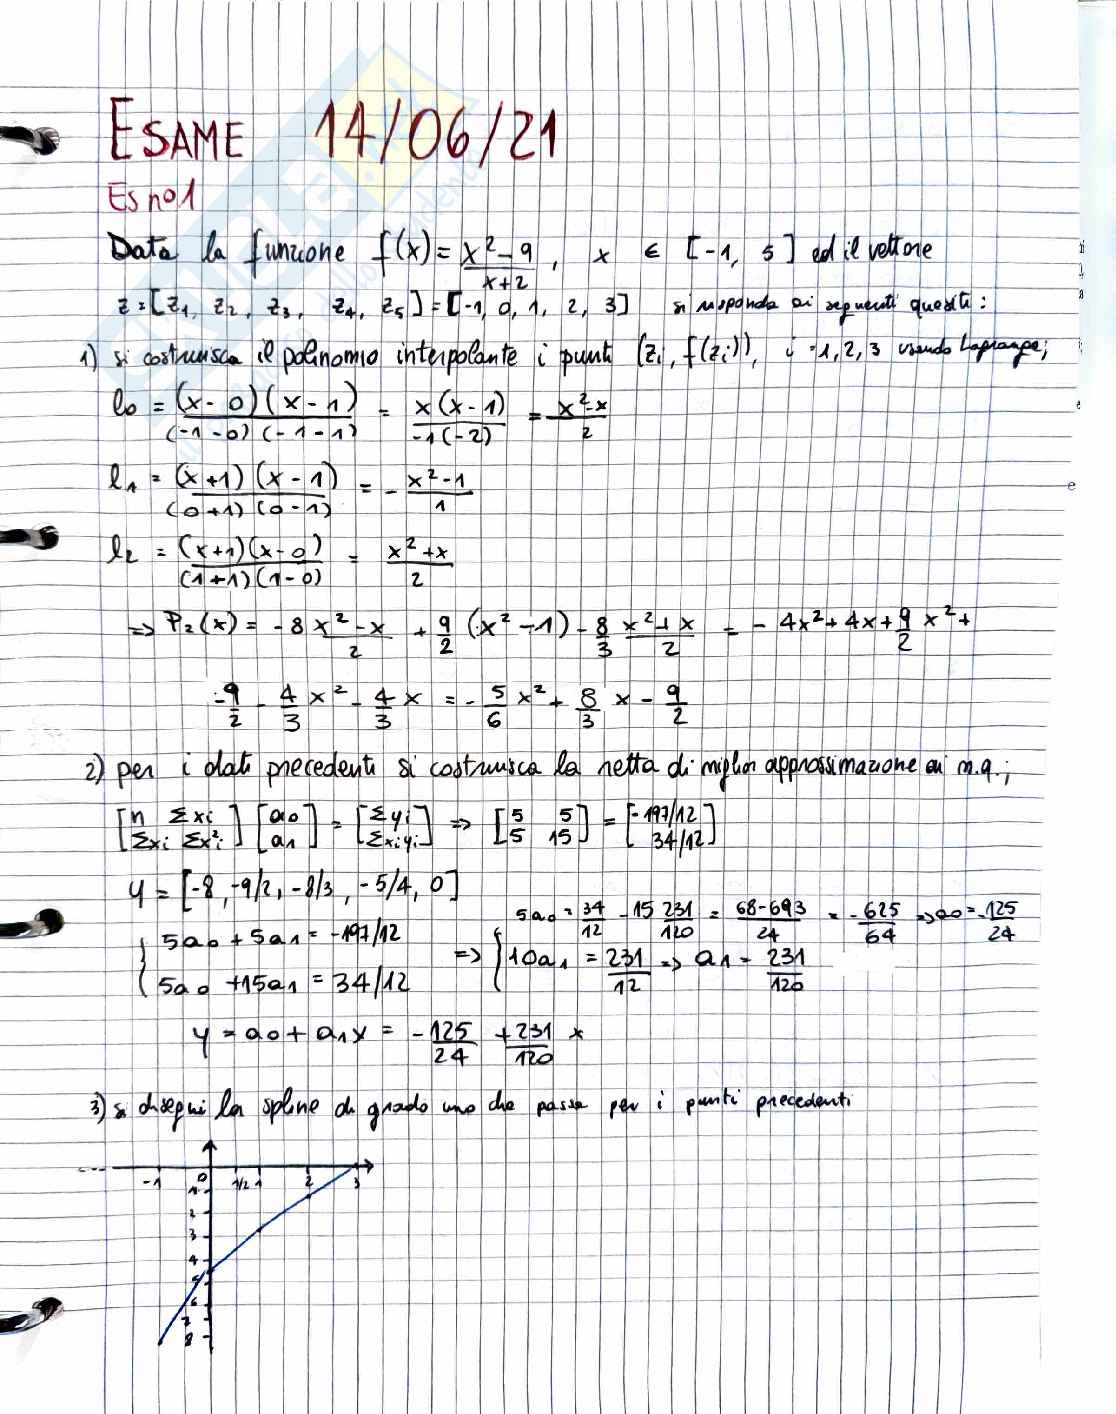 ESAME 14/06/21
Es no1
Data la funzione f(x) = (x²-9)/(x+2), x ∈ [-1, 5] ed il vettore
z = [z₁, z₂, z₃, z₄, z₅] = [-1, 0, 1, 2, 3] si risponda ai seguenti quesiti:
1) si costruisca il polinomio interpolante i punti (zᵢ, f(zᵢ)), i = 1, 2, 3 usando Lagrange;
l₀ = (x-0)(x-1)/(-1-0)(-1-1) = x(x-1)/-1(-2) = (x²-x)/2
l₁ = (x+1)(x-1)/(0+1)(0-1) = -(x²-1)/1
l₂ = (x+1)(x-0)/(1+1)(1-0) = (x²+x)/2
=> P₂(x) = -8 (x²-x)/2 + 9/2 (x²-1) - 8/3 (x²+x)/2 = -4x²+4x+9/2 x²+
-9/2 - 4/3 x² - 4/3 x = -5/6 x² + 8/3 x - 9/2
2) per i dati precedenti si costruisca la retta di miglior approssimazione ai m.q.;
[n Σxi; Σxi Σx²i] [a₀; a₁] = [Σyi; Σxiyi] => [5 5; 5 15] = [-197/12; 34/12]
y = [-8, -9/2, -8/3, -5/4, 0]
5a₀ = 34/12 - 15 231/120 = (68-693)/24 = -625/64 => a₀ = -125/24
5a₀ + 5a₁ = -197/12
=> 10a₁ = 231/12 => a₁ = 231/120
5a₀ + 15a₁ = 34/12
y = a₀ + a₁x = -125/24 + 231/120 x
3) si disegni la spline di grado uno che passa per i punti precedenti
-1 0 1/2 1 2 3
1
2
3
4
5
6
7
8